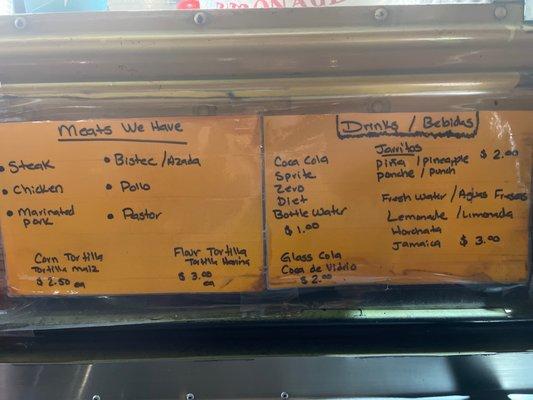 MONADE
Meats We Have
• Steak
• Chicken
• Marinated
Pork
• Bistec / Azada
• Pollo
• Pastor
Corn Tortilla
Tortilla maiz
$ 2.50 ea
Flour Tortilla
Tortilla Harina
$ 3.00
ea
Drinks / Bebidas
Coca Cola
Sprite
Zero
Diet
Bottle Water
$ 1.00
Glass Cola
Coca de Vidrio
$ 2.00
Jarritos
Piña / Pineapple $ 2.00
ponche / punch
Fresh Water / Aguas Fresas
Lemonade / Limonada
Horchata
Jamaica $ 3.00